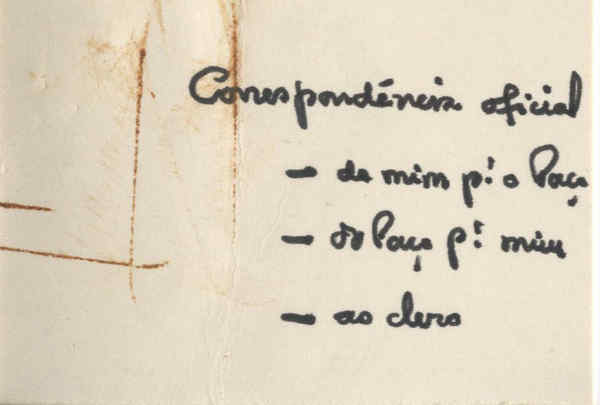 Correspondência oficial
- de mim pª o Paço
- do Paço pª mim
- ao clero